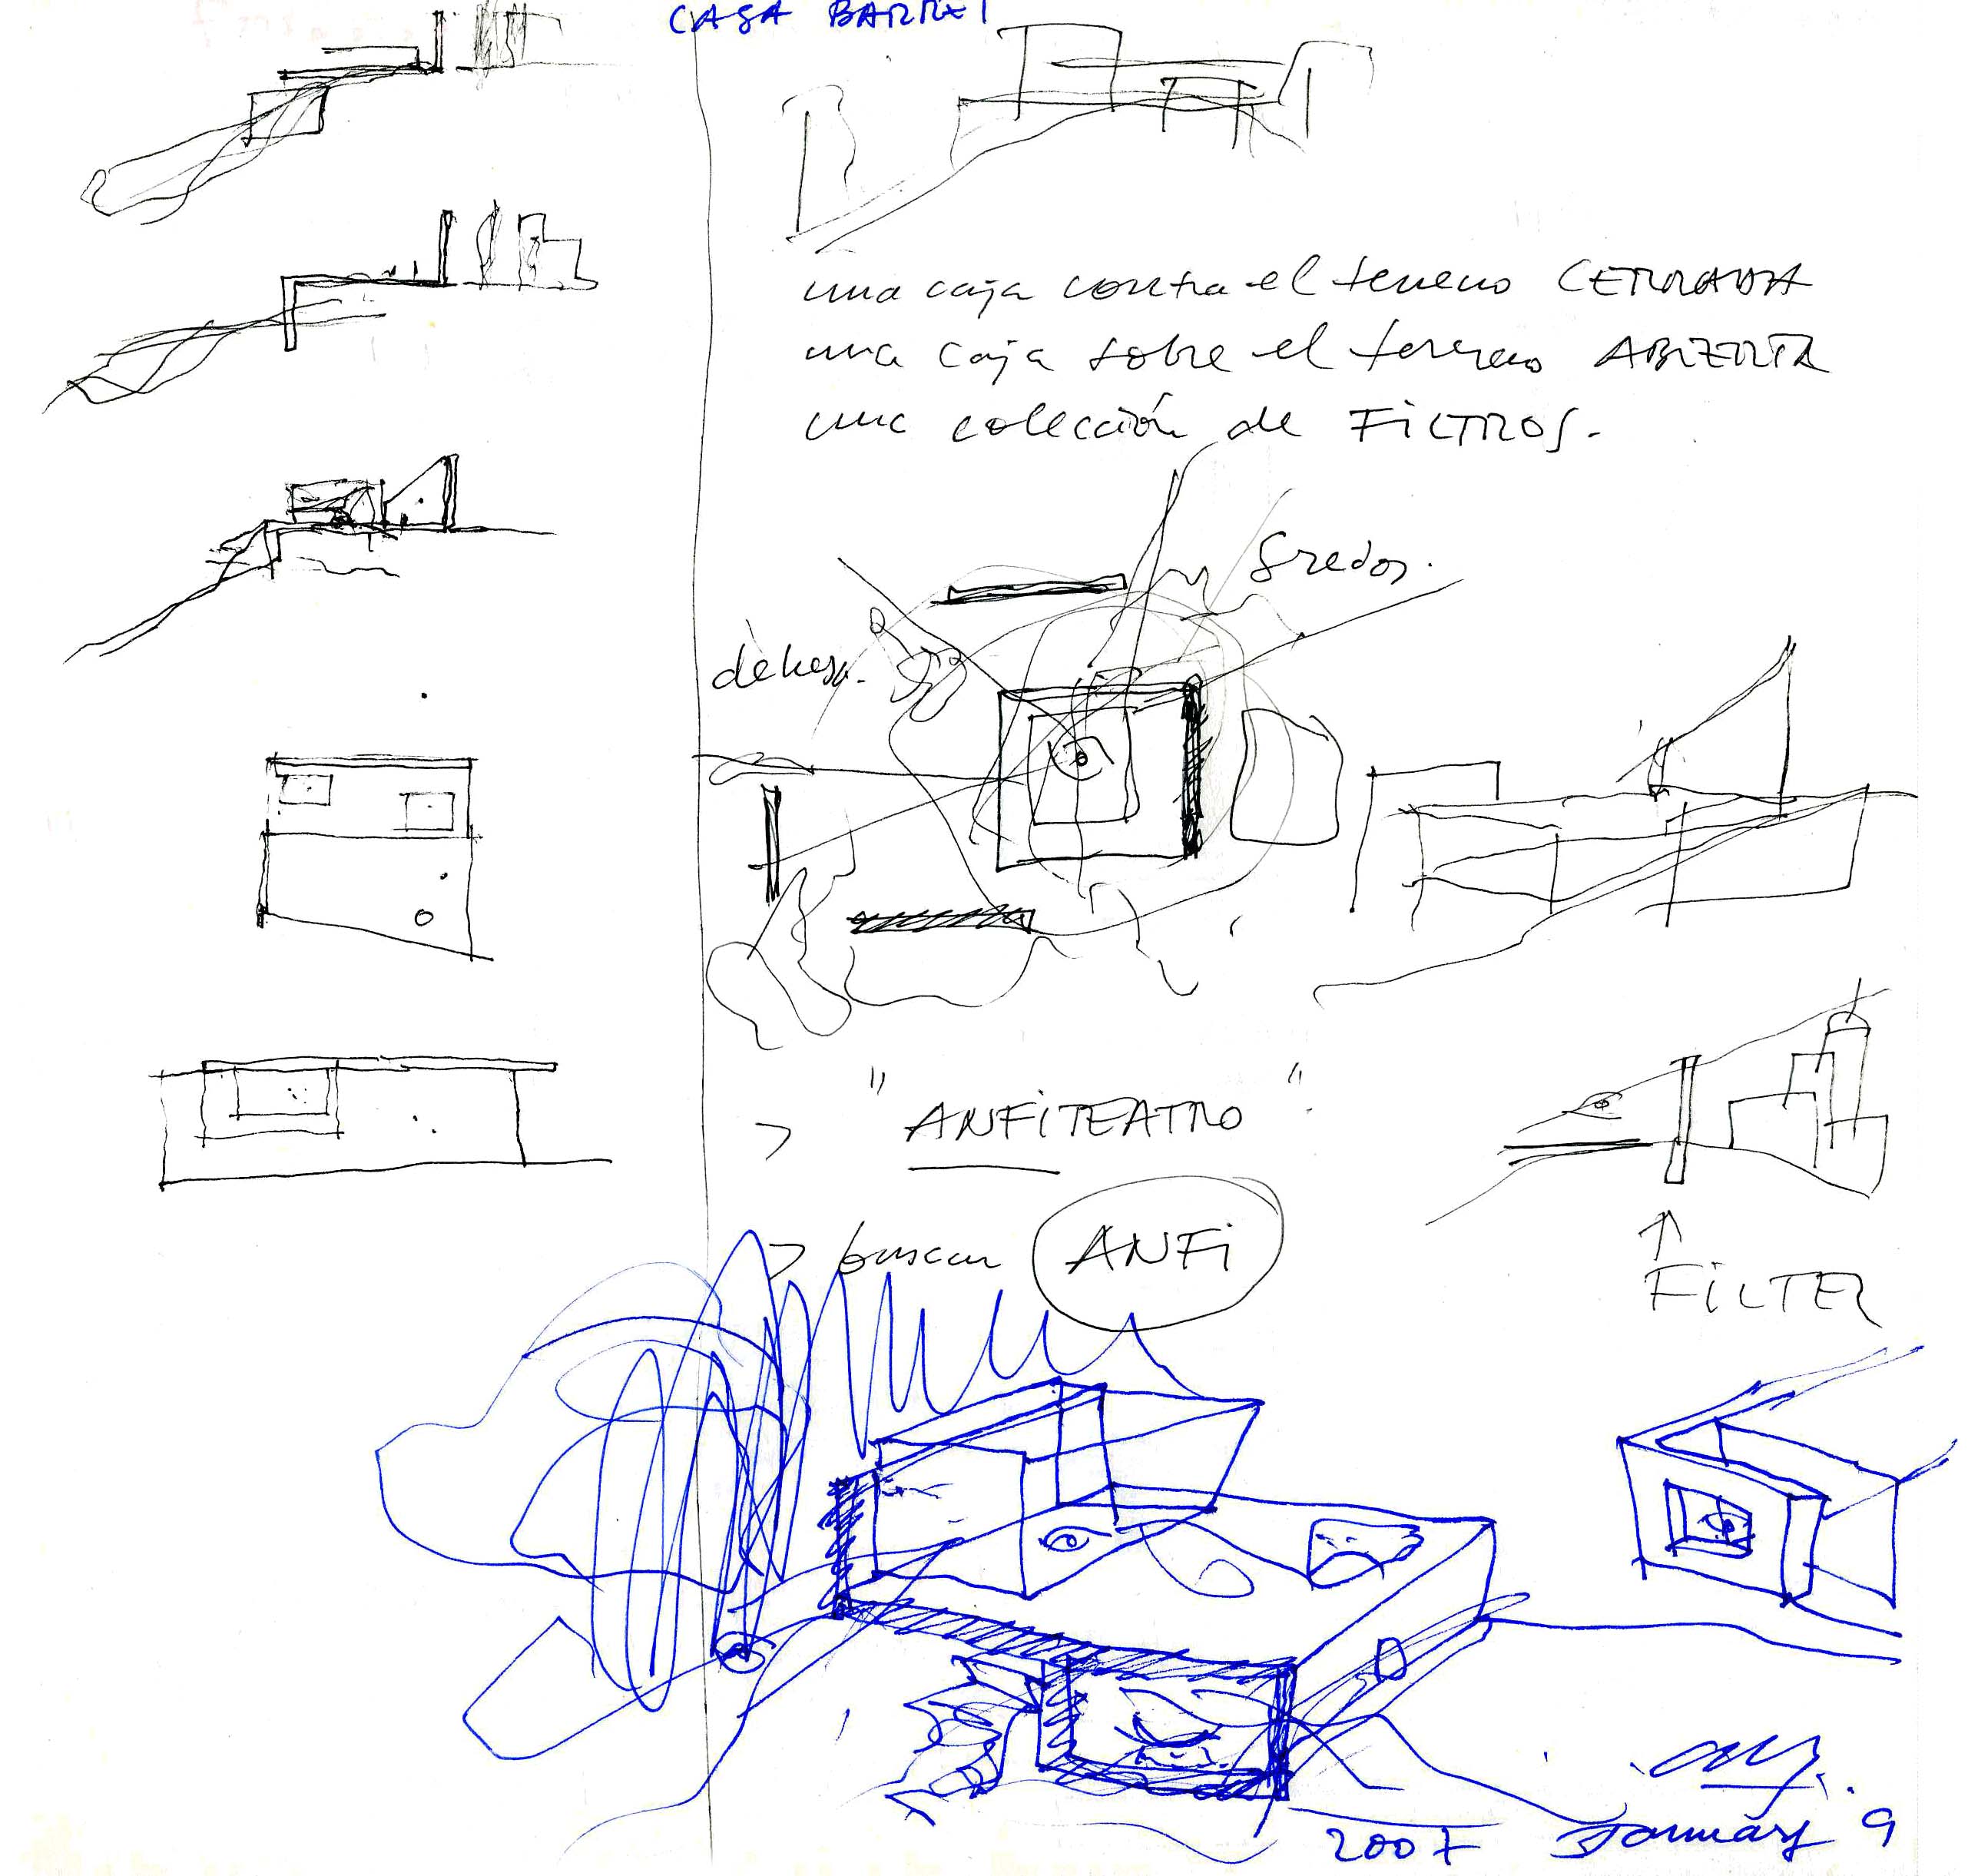 CASA BARRET
una caja contra el terreno CERRADA
una caja sobre el terreno ABIERTA
una colección de FiLTROS.
Gredos.
dehesa.
> "ANFiTEATRO"
> buscar ANFi
FiLTER
2007 January 9